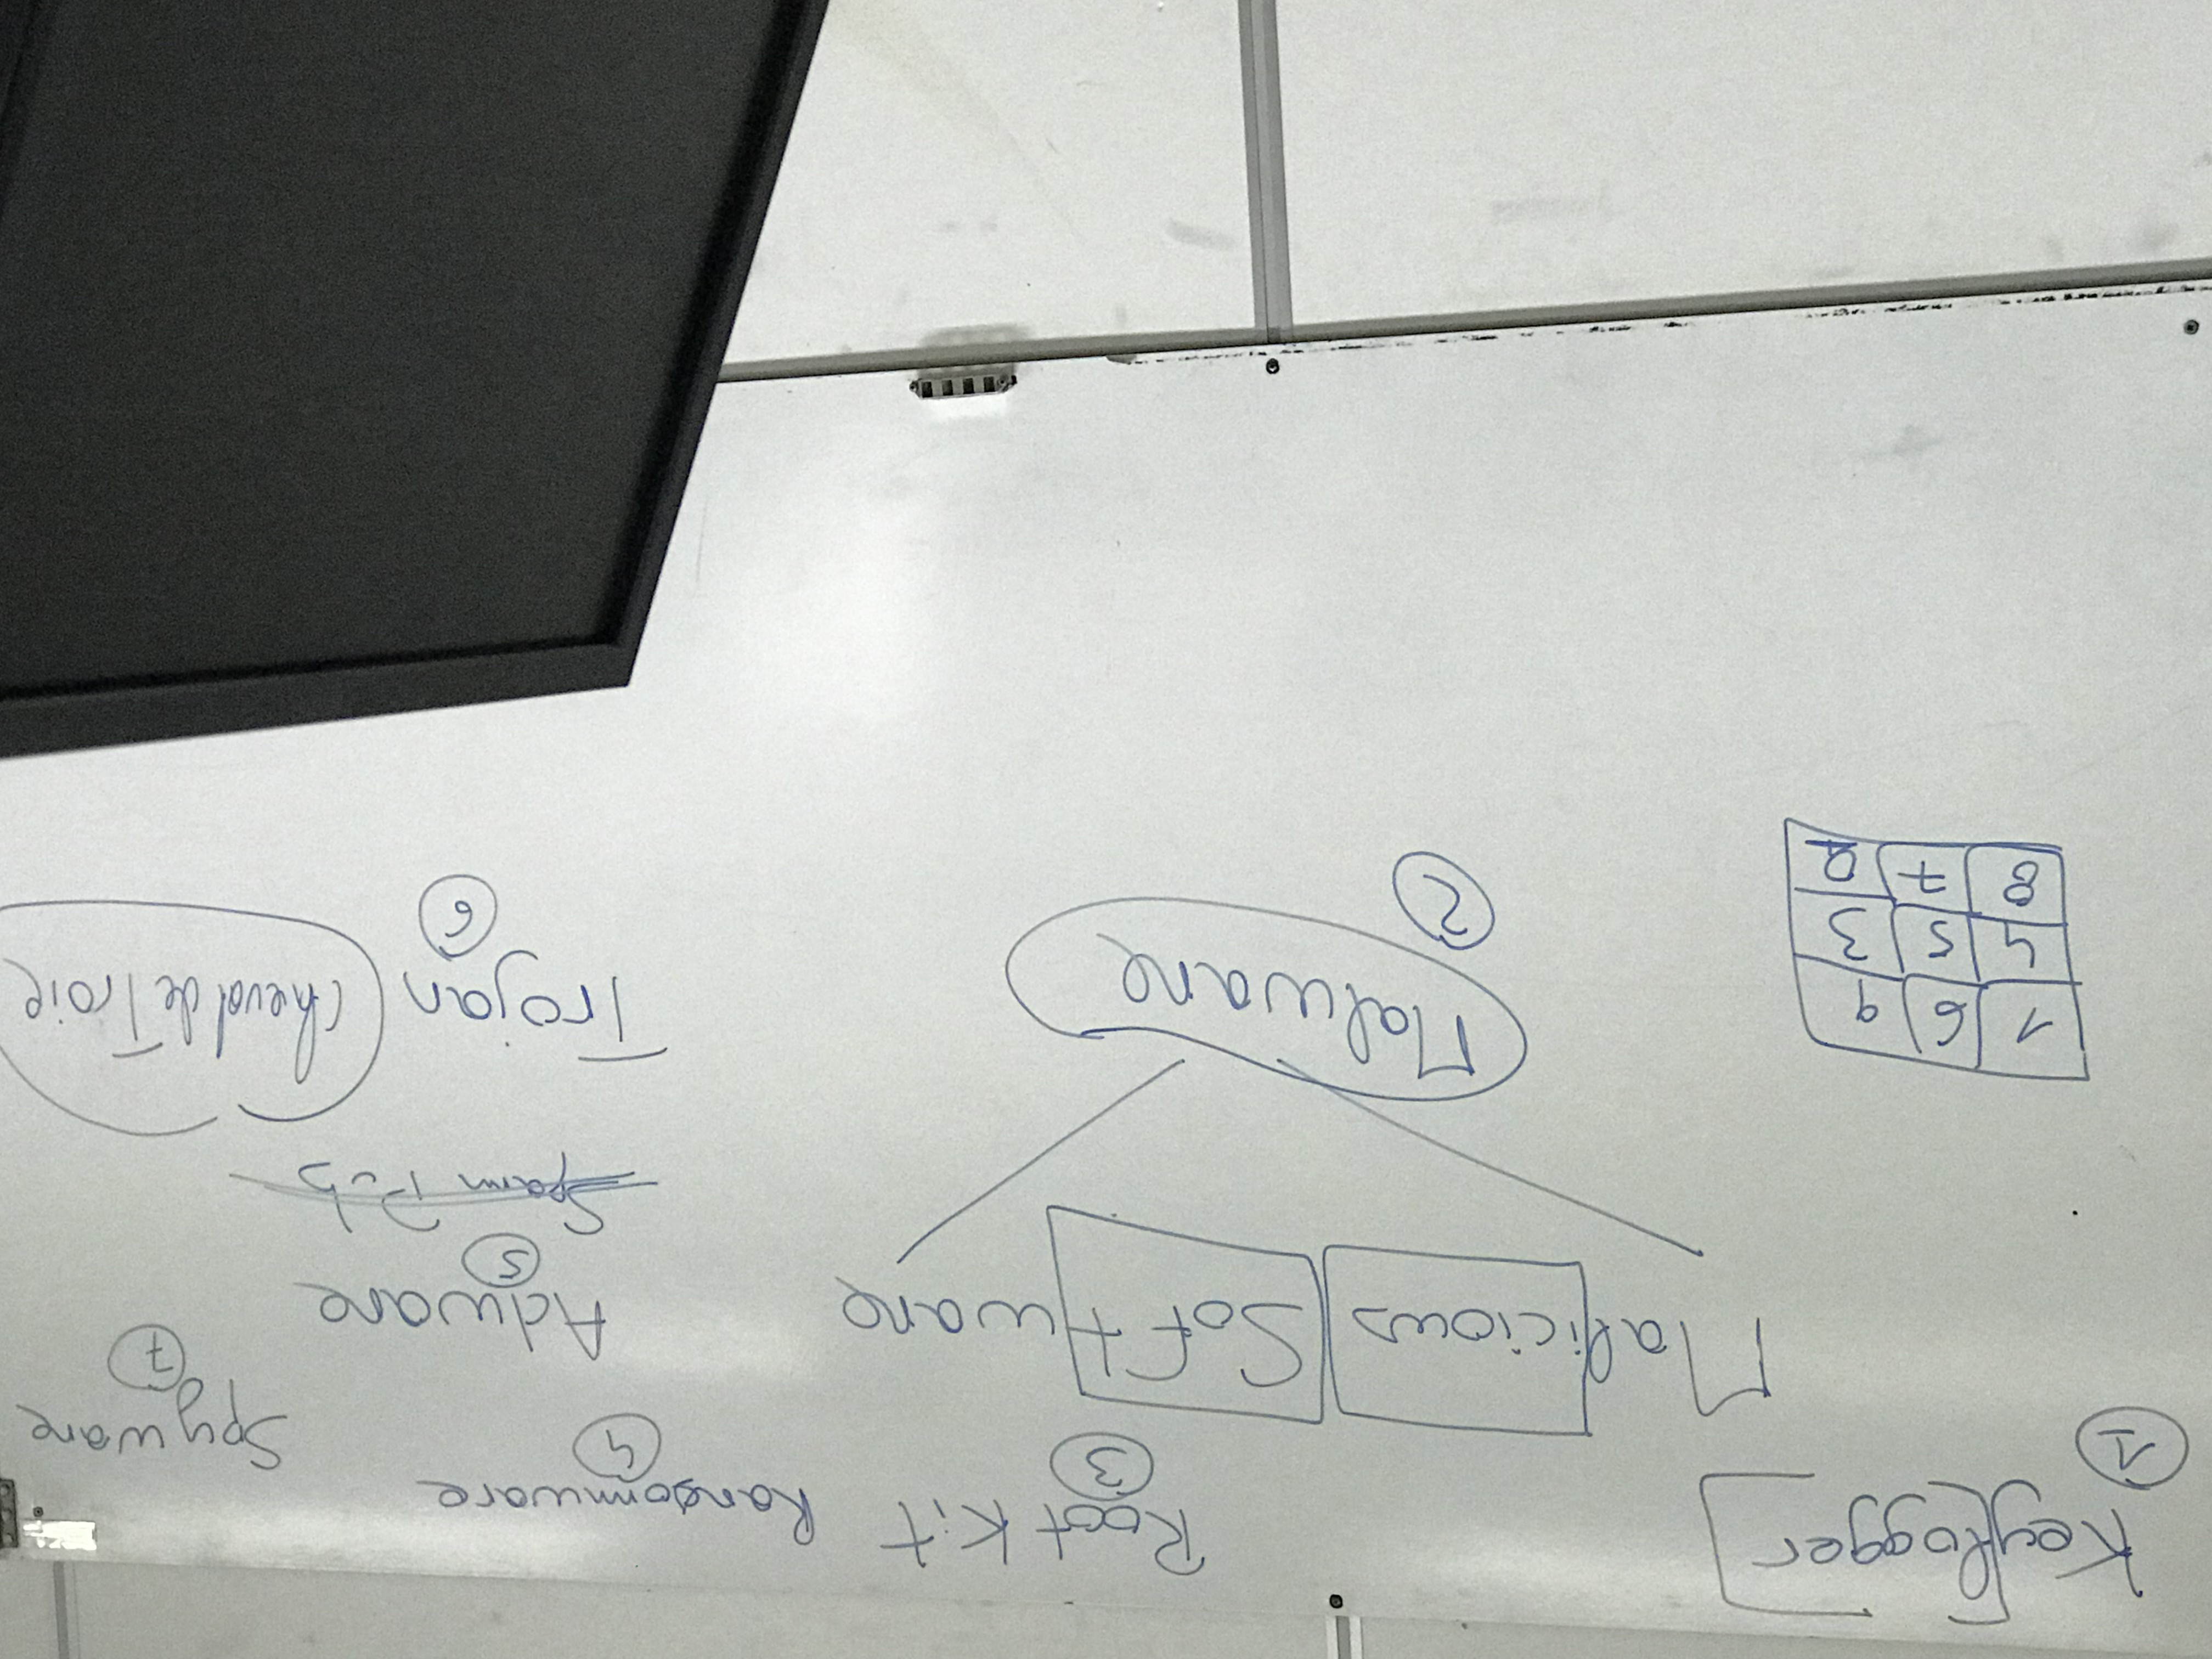 Keylogger
1
Root Kit
3
Ransomware
4
Spyware
7
Malicious Software
Adware
5
Spam Pub
Malware
2
Trojan cheval de Troie
6
1 6 9
4 5 3
8 7 2